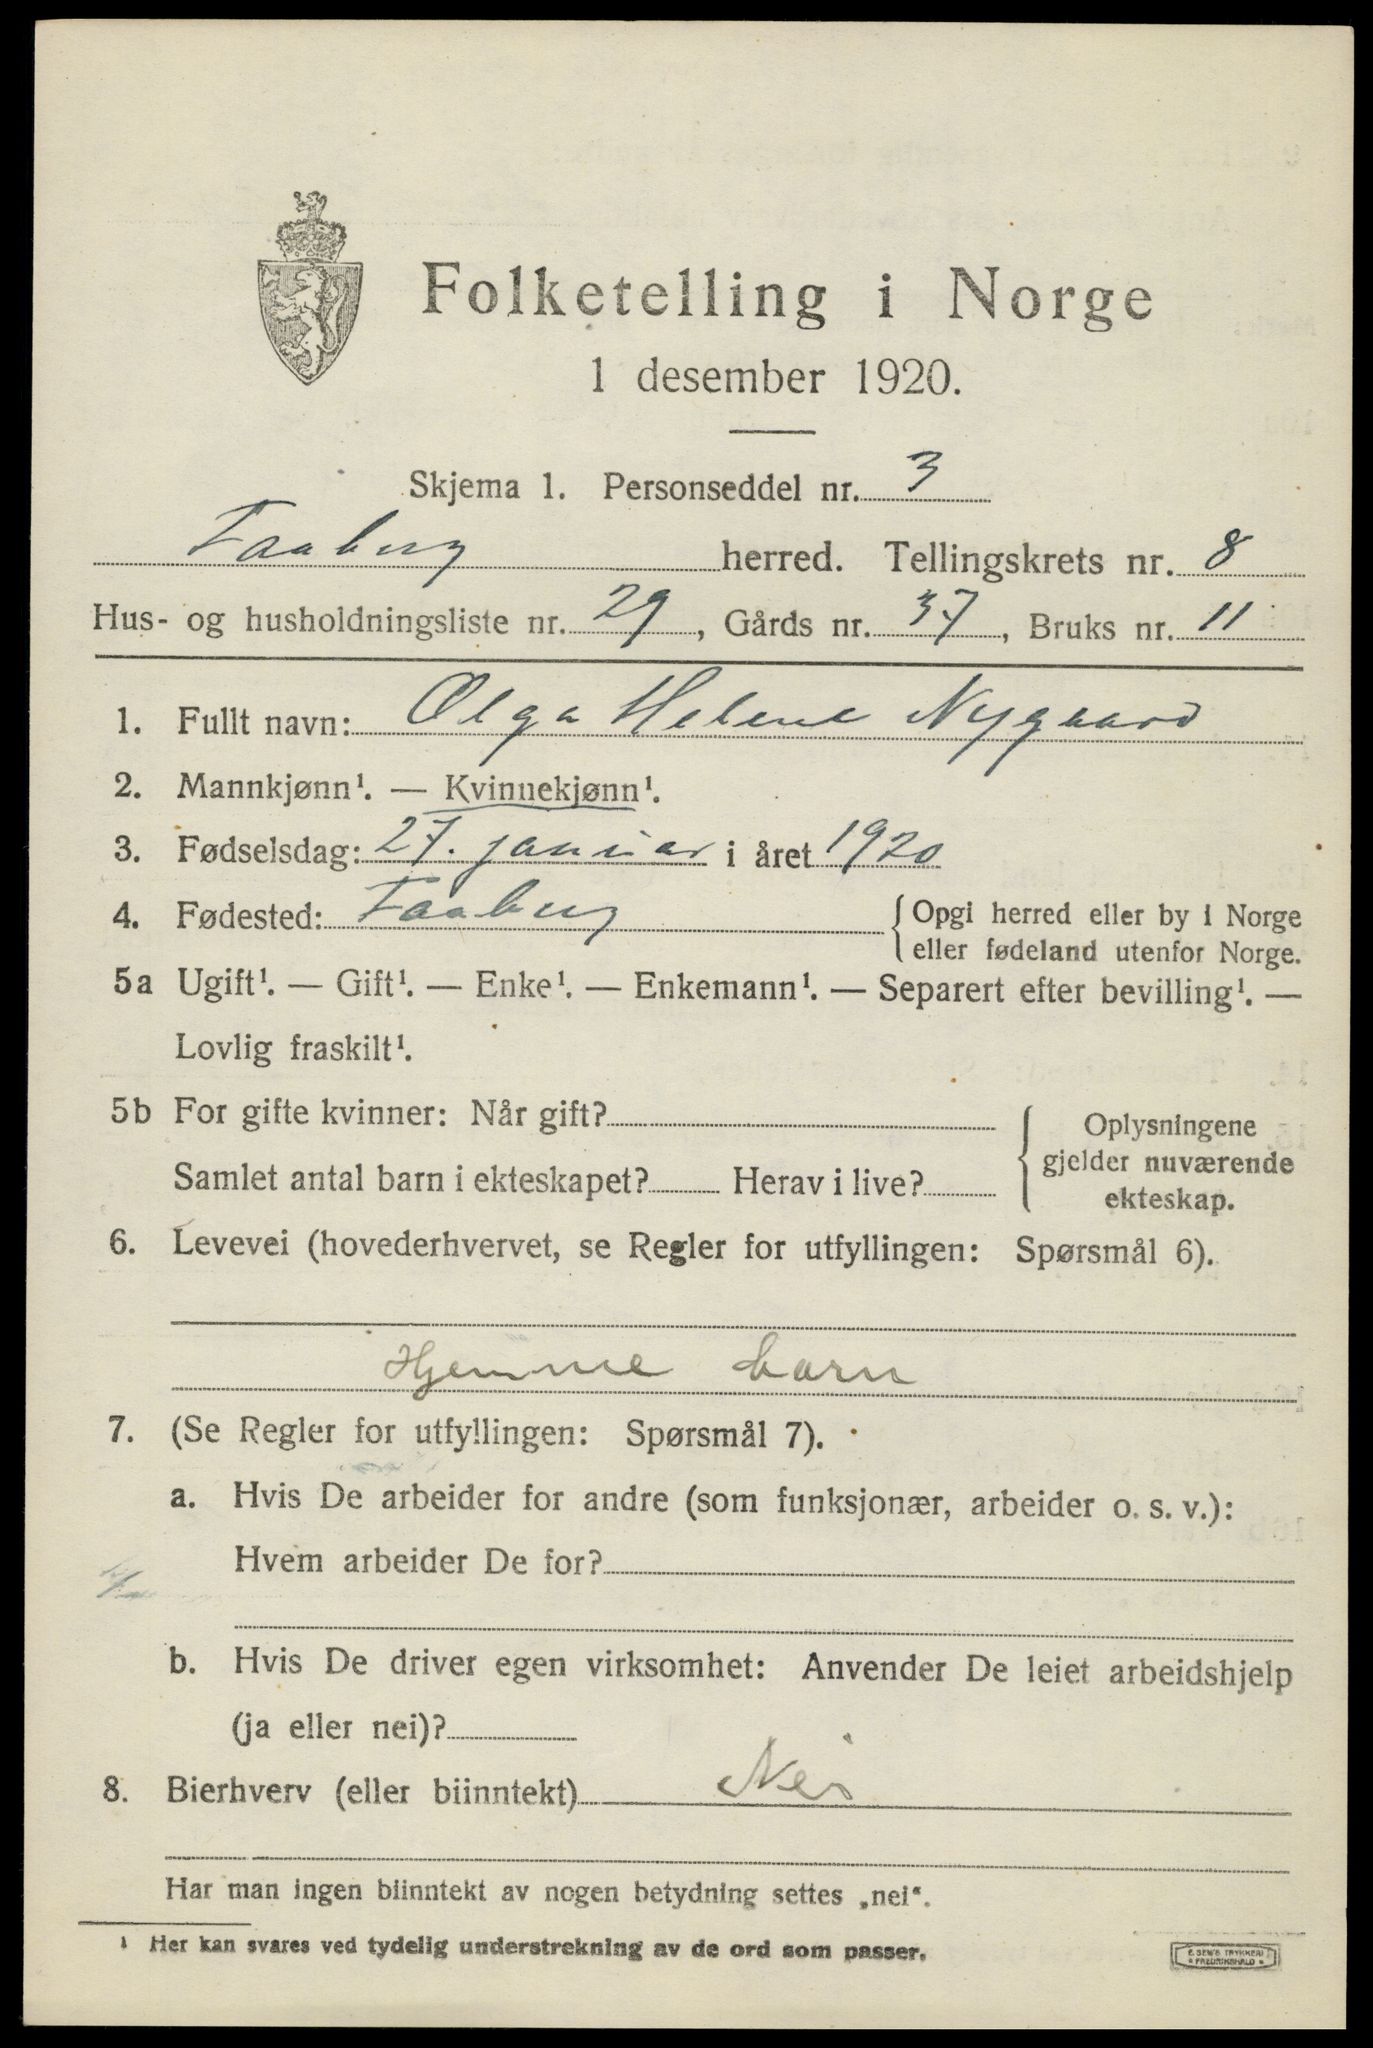 Folketelling i Norge
1 desember 1920.
Skjema 1. Personseddel nr. 3
Faaberg herred. Tellingskrets nr. 8
Hus- og husholdningsliste nr. 29, Gårds nr. 37, Bruks nr. 11
1. Fullt navn: Olga Helene Nygaard
2. Mannkjønn¹. — Kvinnekjønn¹.
3. Fødselsdag: 27. januar i året 1920
4. Fødested: Faaberg {Opgi herred eller by i Norge
eller fødeland utenfor Norge.
5a Ugift¹. — Gift¹. — Enke¹. — Enkemann¹. — Separert efter bevilling¹. —
Lovlig fraskilt¹.
5b For gifte kvinner: Når gift?
Samlet antal barn i ekteskapet? Herav i live?
Oplysningene
gjelder nuværende
ekteskap.
6. Levevei (hovederhvervet, se Regler for utfyllingen: Spørsmål 6).
Hjemme barn
7. (Se Regler for utfyllingen: Spørsmål 7).
a. Hvis De arbeider for andre (som funksjonær, arbeider o. s. v.):
Hvem arbeider De for?
b. Hvis De driver egen virksomhet: Anvender De leiet arbeidshjelp
(ja eller nei)?
8. Bierhverv (eller biinntekt) Nei
Har man ingen biinntekt av nogen betydning settes „nei“.
¹ Her kan svares ved tydelig understrekning av de ord som passer.
E. SEM'S TRYKKERI
FREDRIKSHALD